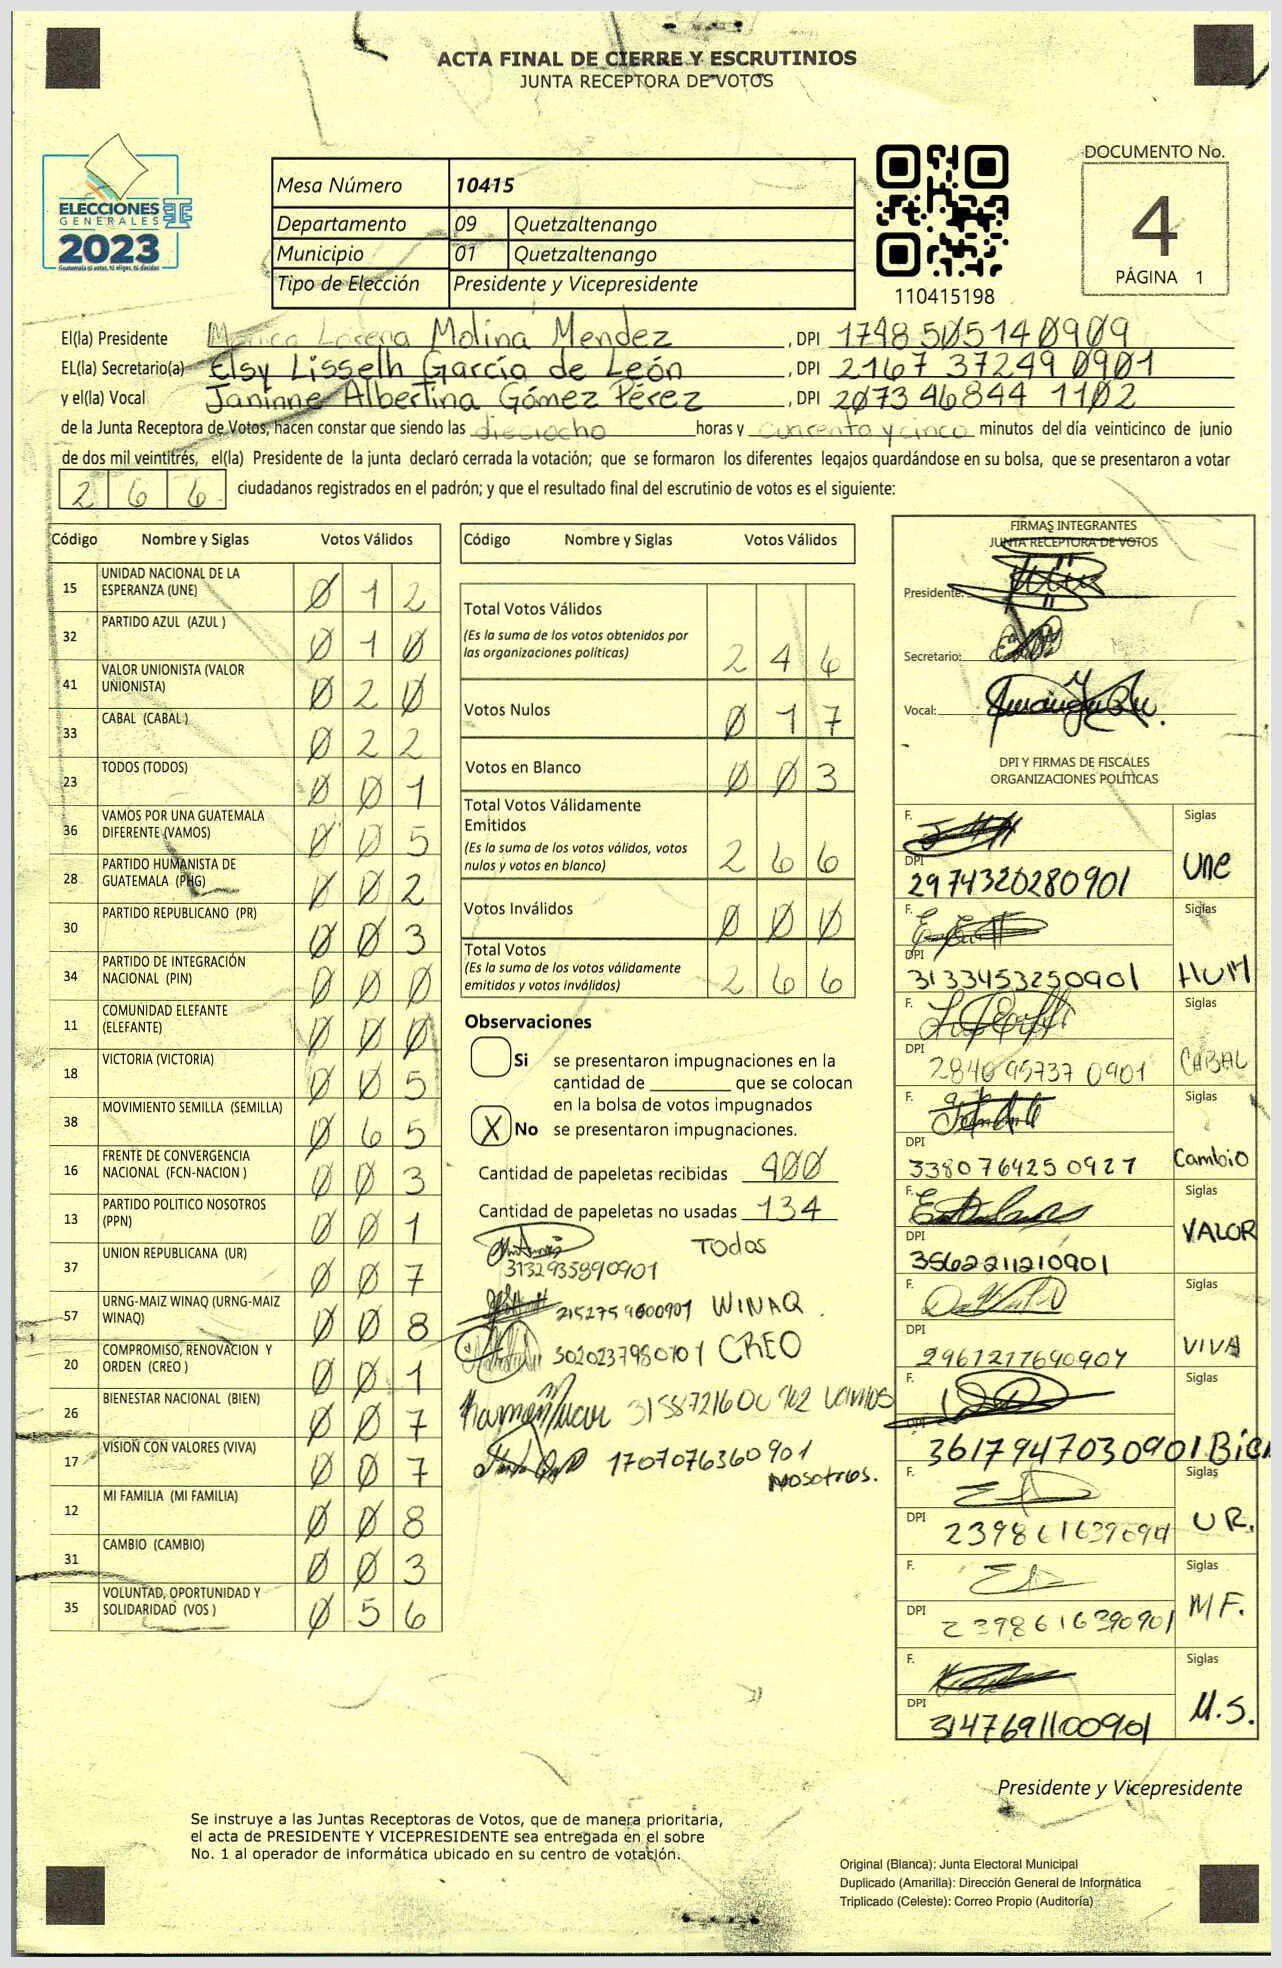 ACTA FINAL DE CIERRE Y ESCRUTINIOS
JUNTA RECEPTORA DE VOTOS
ELECCIONES
GENERALES
2023
Guatemala tú votas, tú eliges, tú decides
TSE
Mesa Número 10415
Departamento 09 Quetzaltenango
Municipio 01 Quetzaltenango
Tipo de Elección Presidente y Vicepresidente
110415198
DOCUMENTO No.
4
PÁGINA 1
El(la) Presidente Monica Lorena Molina Mendez, DPI 1748 50514 0909
EL(la) Secretario(a) Elsy Lisseth García de León, DPI 2167 37249 0901
y el(la) Vocal Janinne Albertina Gómez Pérez, DPI 2073 46844 1102
de la Junta Receptora de Votos, hacen constar que siendo las dieciocho horas y cuarenta y cinco minutos del día veinticinco de junio
de dos mil veintitrés, el(la) Presidente de la junta declaró cerrada la votación; que se formaron los diferentes legajos guardándose en su bolsa, que se presentaron a votar
266 ciudadanos registrados en el padrón; y que el resultado final del escrutinio de votos es el siguiente:
Código Nombre y Siglas Votos Válidos
15 UNIDAD NACIONAL DE LA ESPERANZA (UNE) 012
32 PARTIDO AZUL (AZUL ) 010
41 VALOR UNIONISTA (VALOR UNIONISTA) 020
33 CABAL (CABAL ) 022
23 TODOS (TODOS) 001
36 VAMOS POR UNA GUATEMALA DIFERENTE (VAMOS) 005
28 PARTIDO HUMANISTA DE GUATEMALA (PHG) 002
30 PARTIDO REPUBLICANO (PR) 003
34 PARTIDO DE INTEGRACIÓN NACIONAL (PIN) 000
11 COMUNIDAD ELEFANTE (ELEFANTE) 000
18 VICTORIA (VICTORIA) 005
38 MOVIMIENTO SEMILLA (SEMILLA) 065
16 FRENTE DE CONVERGENCIA NACIONAL (FCN-NACION ) 003
13 PARTIDO POLITICO NOSOTROS (PPN) 001
37 UNION REPUBLICANA (UR) 007
57 URNG-MAIZ WINAQ (URNG-MAIZ WINAQ) 008
20 COMPROMISO, RENOVACION Y ORDEN (CREO ) 001
26 BIENESTAR NACIONAL (BIEN) 007
17 VISION CON VALORES (VIVA) 007
12 MI FAMILIA (MI FAMILIA) 008
31 CAMBIO (CAMBIO) 003
35 VOLUNTAD, OPORTUNIDAD Y SOLIDARIDAD (VOS ) 056
Código Nombre y Siglas Votos Válidos
Total Votos Válidos 246
(Es la suma de los votos obtenidos por
las organizaciones políticas)
Votos Nulos 017
Votos en Blanco 003
Total Votos Válidamente
Emitidos 266
(Es la suma de los votos válidos, votos
nulos y votos en blanco)
Votos Inválidos 000
Total Votos 266
(Es la suma de los votos válidamente
emitidos y votos inválidos)
Observaciones
Si se presentaron impugnaciones en la
cantidad de ________ que se colocan
en la bolsa de votos impugnados
X No se presentaron impugnaciones.
Cantidad de papeletas recibidas 400
Cantidad de papeletas no usadas 134
Todos
3132935890901
WINAQ
CREO
Vamos
1707076360901
Nosotros.
FIRMAS INTEGRANTES
JUNTA RECEPTORA DE VOTOS
Presidente:
Secretario:
Vocal:
DPI Y FIRMAS DE FISCALES
ORGANIZACIONES POLÍTICAS
F. Siglas
DPI 2974320280901 Une
F. Siglas
DPI 3133453250901 HUM
F. Siglas
DPI 2840957370901 CABAL
F. Siglas
DPI 3380764250927 Cambio
F. Siglas
DPI 3562211210901 VALOR
F. Siglas
DPI VIVA
F. Siglas
DPI 3617947030901 Bien
F. Siglas
DPI UR.
F. Siglas
DPI 2398616390901 MF.
F. Siglas
DPI 3147691100901 M.S.
Presidente y Vicepresidente
Se instruye a las Juntas Receptoras de Votos, que de manera prioritaria,
el acta de PRESIDENTE Y VICEPRESIDENTE sea entregada en el sobre
No. 1 al operador de informática ubicado en su centro de votación.
Original (Blanca): Junta Electoral Municipal
Duplicado (Amarilla): Dirección General de Informática
Triplicado (Celeste): Correo Propio (Auditoría)